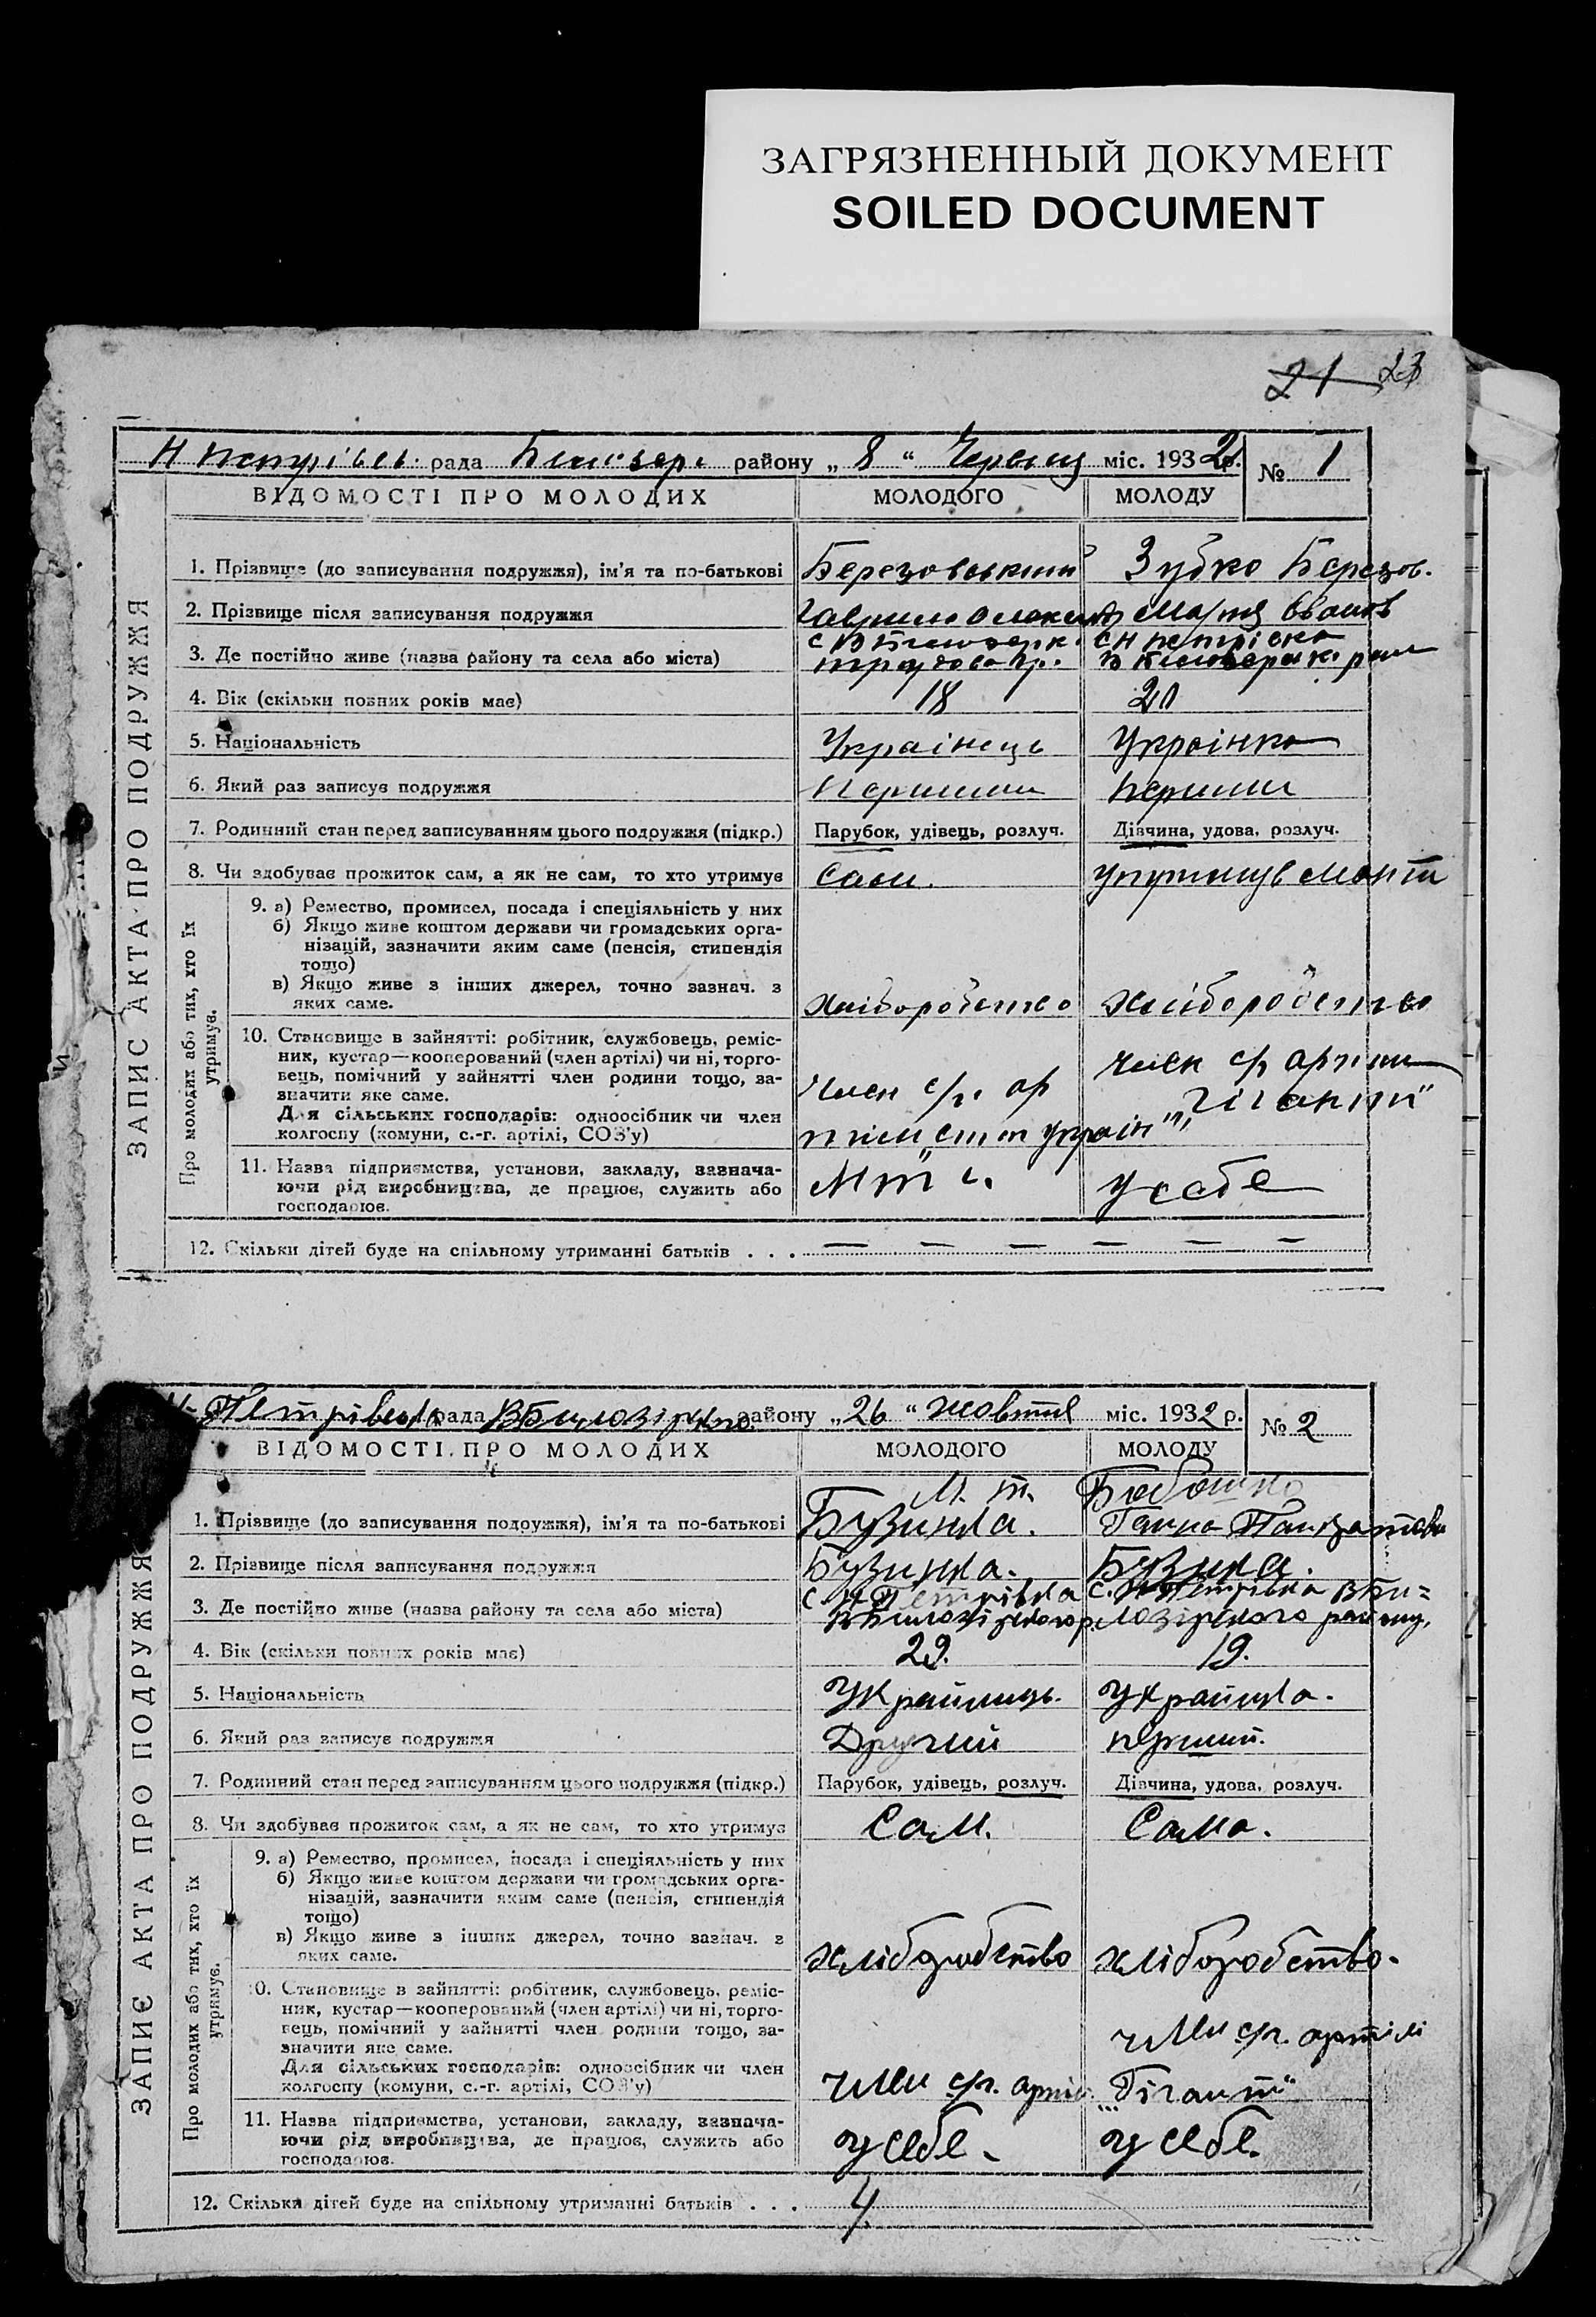 ЗАГРЯЗНЕННЫЙ ДОКУМЕНТ
SOILED DOCUMENT
21 23
рада району „ 8 “ Червня міс. 1932 р. № 1
ВІДОМОСТІ ПРО МОЛОДИХ МОЛОДОГО МОЛОДУ
ЗАПИС АКТА ПРО ПОДРУЖЖЯ
1. Прізвище (до записування подружжя), ім'я та по-батькові Березовський Зубко Березов.
2. Прізвище після записування подружжя Марія
3. Де постійно живе (назва району та села або міста)
4. Вік (скільки повних років має) 18
5. Національність Українець Українка
6. Який раз записує подружжя Перший Перший
7. Родинний стан перед записуванням цього подружжя (підкр.) Парубок, удівець, розлуч. Дівчина, удова, розлуч.
8. Чи здобуває прожиток сам, а як не сам, то хто утримує Сам.
Про молодих або тих, хто їх утримує.
9. а) Ремество, промисел, посада і спеціяльність у них
б) Якщо живе коштом держави чи громадських орга-
нізацій, зазначити яким саме (пенсія, стипендія
тощо)
в) Якщо живе з інших джерел, точно зазнач. з
яких саме. Хліборобство Хліборобство
10. Становище в зайнятті: робітник, службовець, реміс-
ник, кустар—кооперований (член артілі) чи ні, торго-
вець, помічний у зайнятті член родини тощо, за-
значити яке саме. член с/г артілі
Для сільських господарів: одноосібник чи член член с/г. ар „Гігант“
колгоспу (комуни, с.-г. артілі, СОЗ'у)
11. Назва підприємства, установи, закладу, зазнача-
ючи рід виробництва, де працює, служить або у себе
господарює.
12. Скільки дітей буде на спільному утриманні батьків . . . — — — — — —
Н-Петрівська рада ВБилозіркого району „ 26 “ жовтня міс. 1932 р. № 2
ВІДОМОСТІ ПРО МОЛОДИХ МОЛОДОГО МОЛОДУ
ЗАПИС АКТА ПРО ПОДРУЖЖЯ
М. т.
1. Прізвище (до записування подружжя), ім'я та по-батькові Бузинла. Ганна
2. Прізвище після записування подружжя
3. Де постійно живе (назва району та села або міста) с. Н Петрівка с. Н Петрівка ВБи=
лозірского району.
4. Вік (скільки повних років має) 29. 19.
5. Національність Украйинць. Украйинка.
6. Який раз записує подружжя Другий перший.
7. Родинний стан перед записуванням цього подружжя (підкр.) Парубок, удівець, розлуч. Дівчина, удова, розлуч.
8. Чи здобуває прожиток сам, а як не сам, то хто утримує Сам. Сама.
Про молодих або тих, хто їх утримує.
9. а) Ремество, промисел, посада і спеціяльність у них
б) Якщо живе коштом держави чи громадських орга-
нізацій, зазначити яким саме (пенсія, стипендія
тощо)
в) Якщо живе з інших джерел, точно зазнач. з
яких саме. хліборобство хліборобство.
10. Становище в зайнятті: робітник, службовець, реміс-
ник, кустар—кооперований (член артілі) чи ні, торго-
вець, помічний у зайнятті член родини тощо, за-
значити яке саме. член с/г. артілі
Для сільських господарів: одноосібник чи член
колгоспу (комуни, с.-г. артілі, СОЗ'у) член с/г. артіл. „Гігант“
11. Назва підприємства, установи, закладу, зазнача-
ючи рід виробництва, де працює, служить або у себе. у себе.
господарює.
12. Скільки дітей буде на спільному утриманні батьків . . . 4